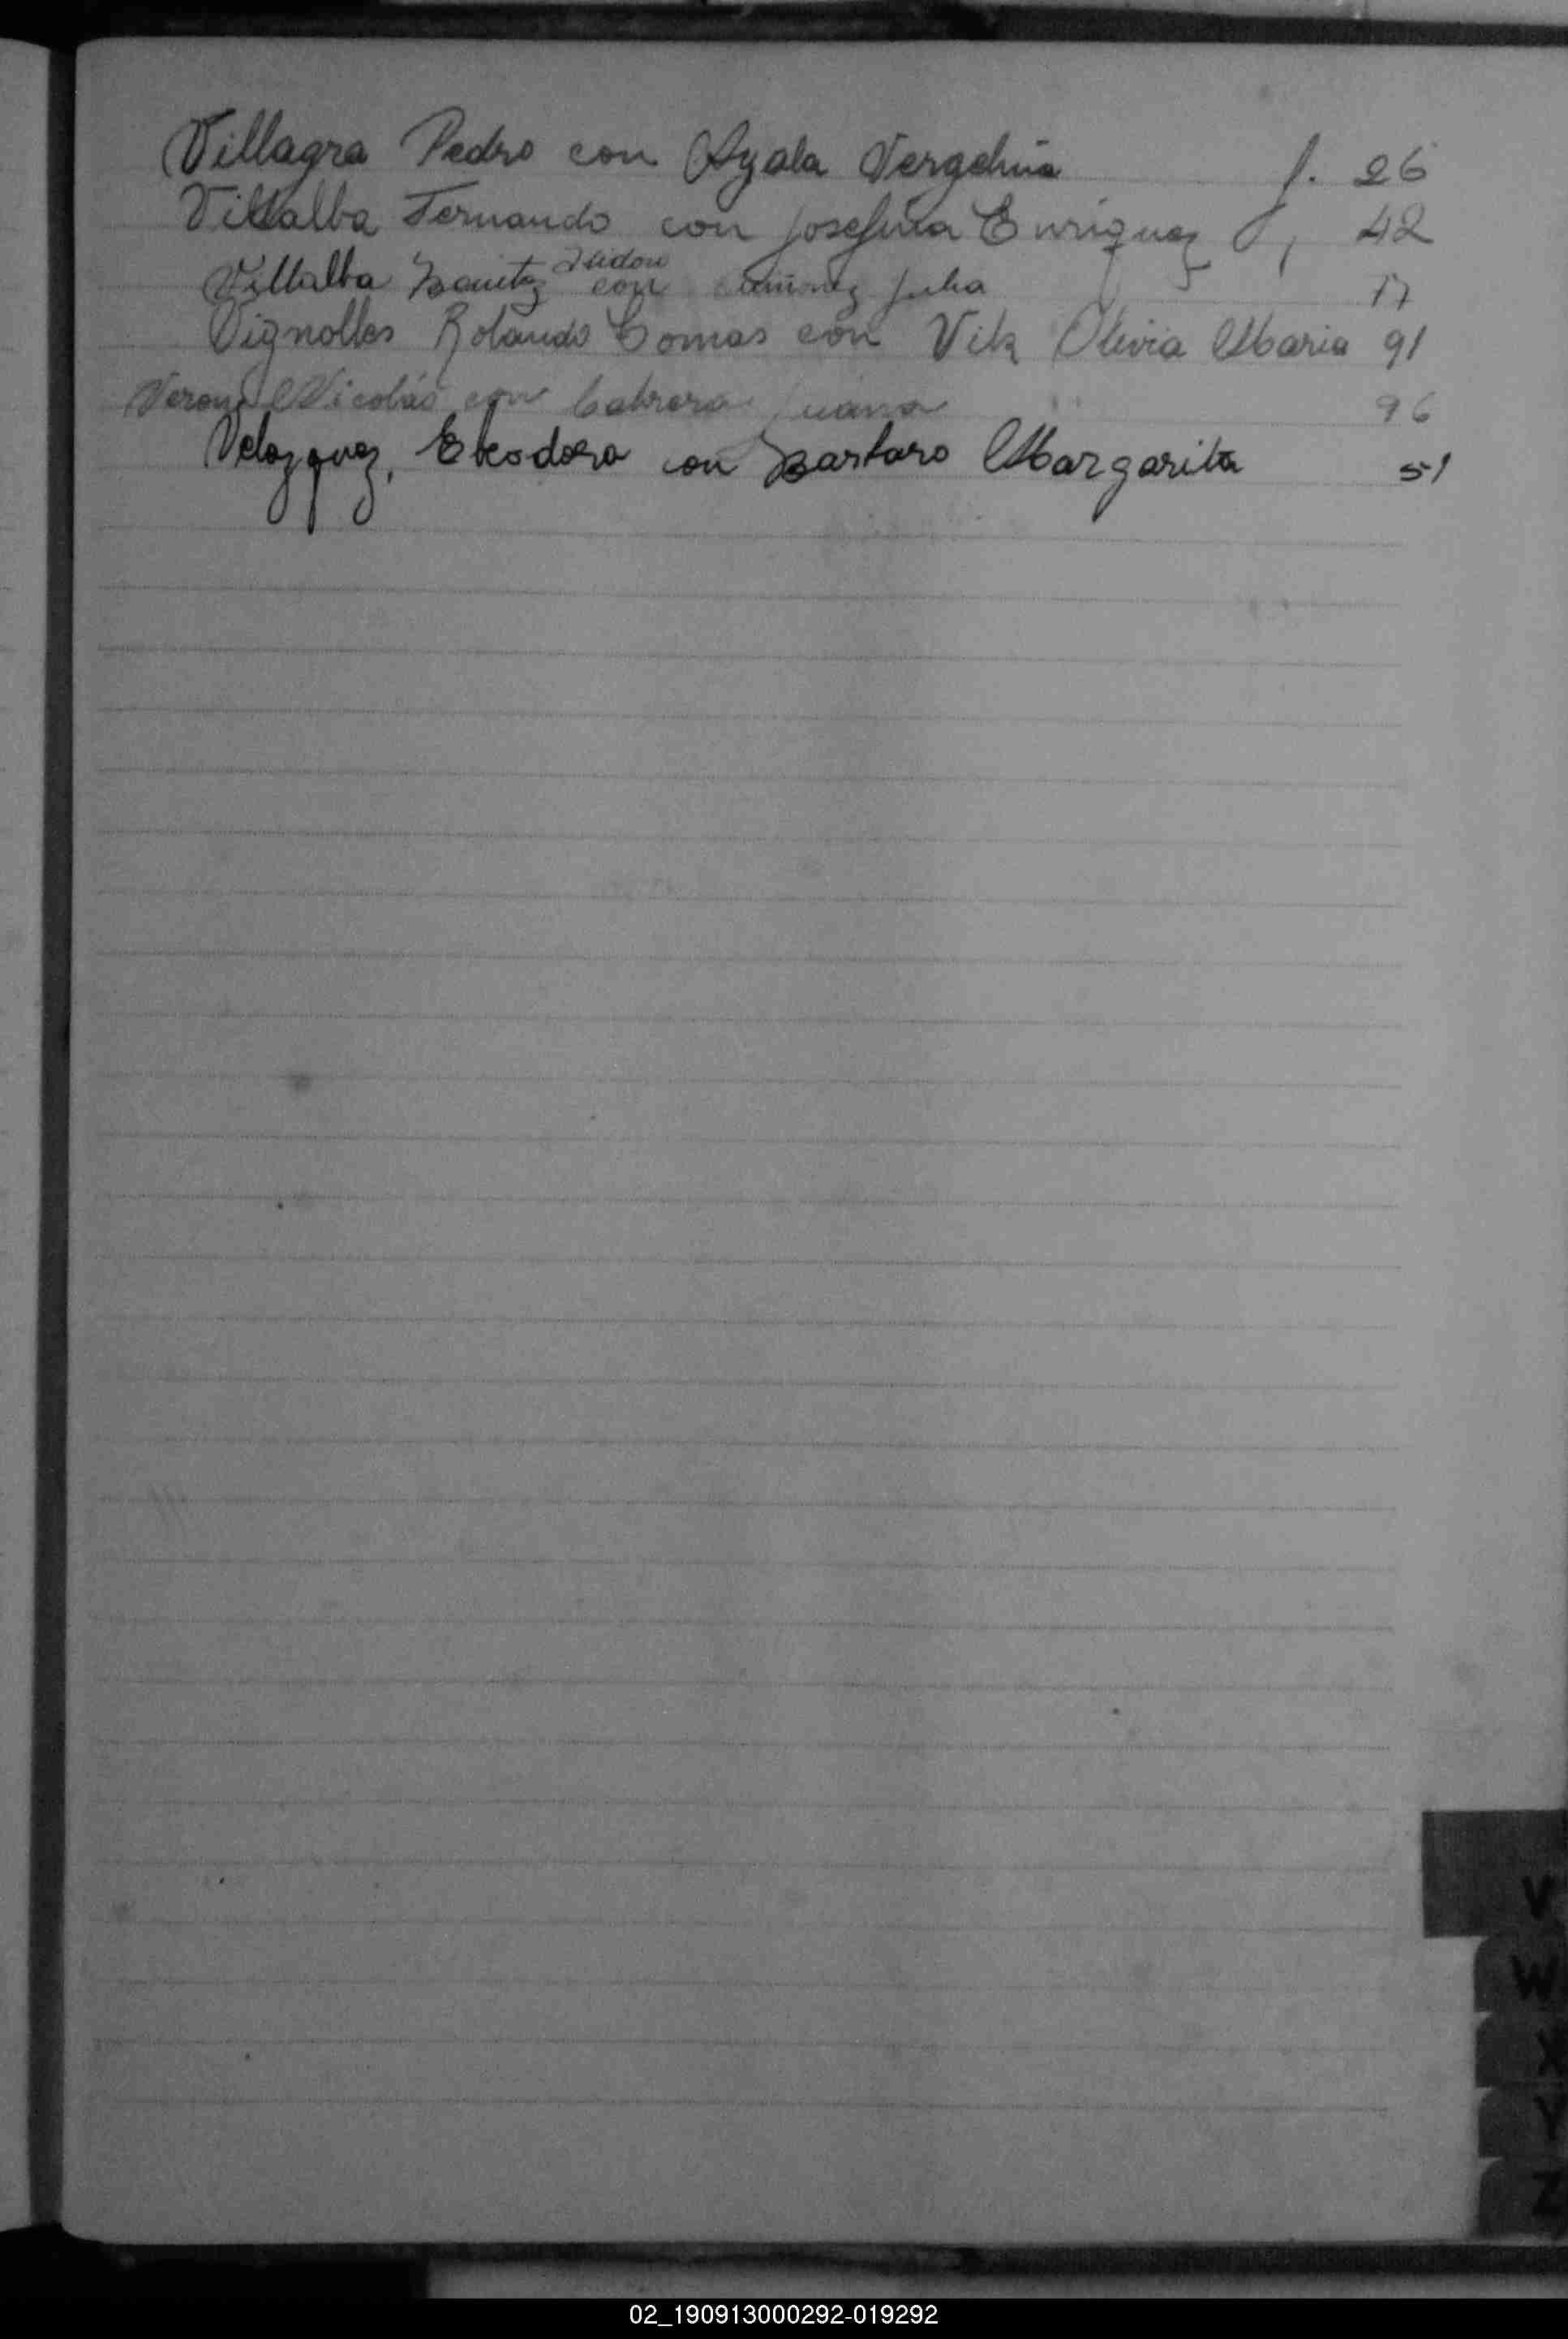 Villagra Pedro con Ayala Vergelina f. 26
Villalba Fernando con Josefina Enriquez f, 42
Villalba Benitez Isidoro con Julia 77
Vignolles Rolando Tomas con Vilz Olivia Maria 91
Verón Nicolás con Cabrera Juana 96
Velazquez, Eleodoro con Barbaro Margarita 51
V
W
X
Y
Z
02_190913000292-019292